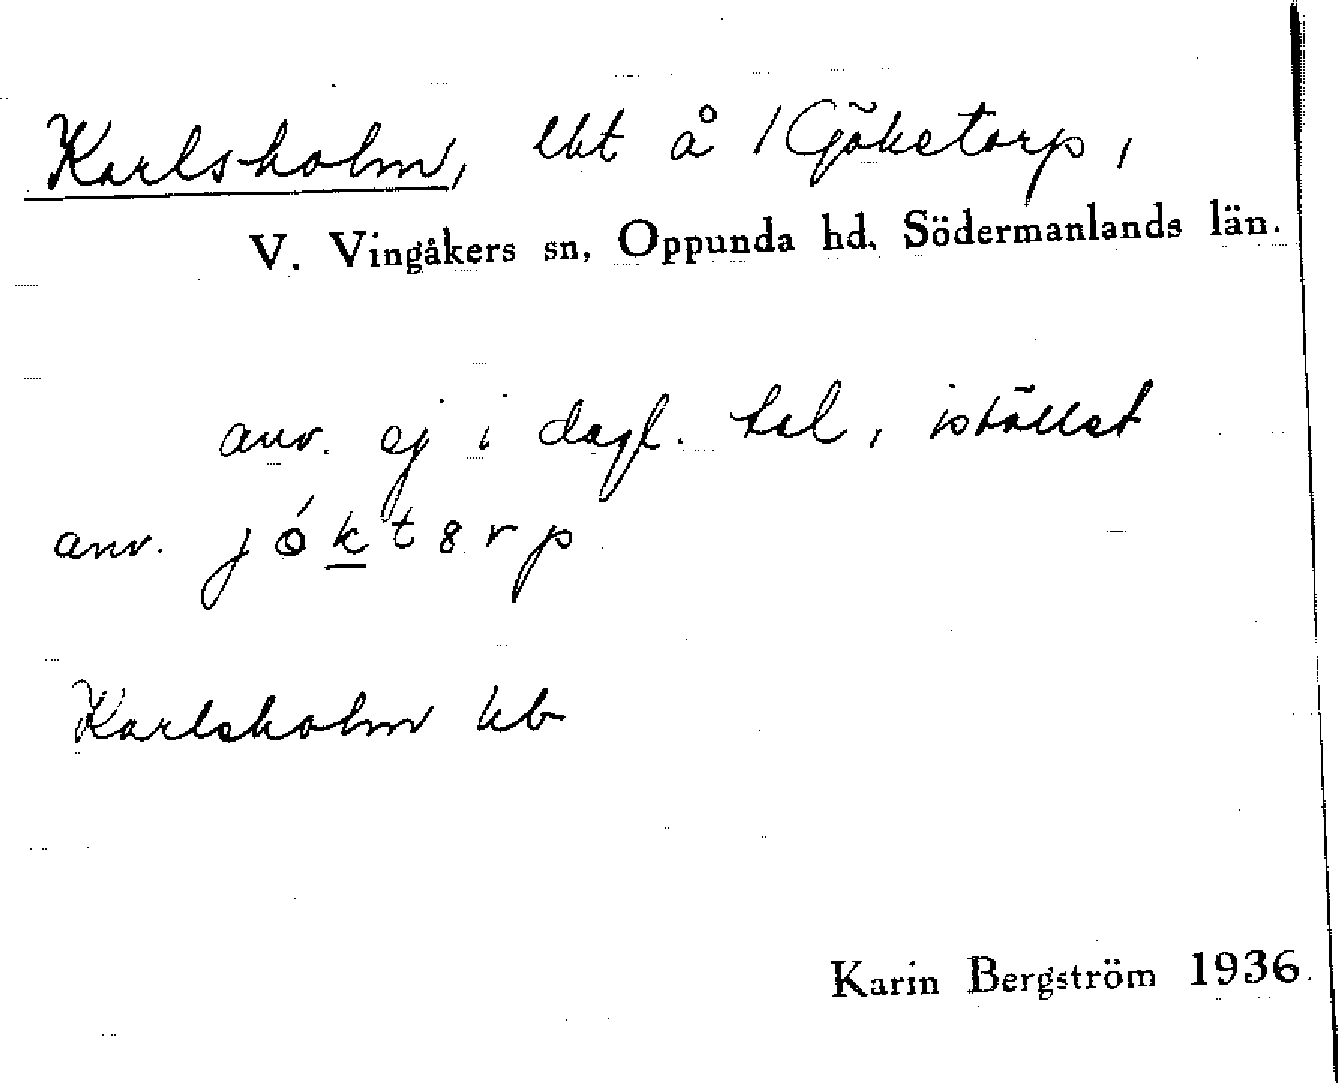 Karlsholm, lht å 1 Göketorp,
V. Vingåkers sn, Oppunda hd, Södermanlands län.
anv. ej i dagl. tal, istället
anv. jók̲tɞrp
Karlsholm kb
Karin Bergström 1936.